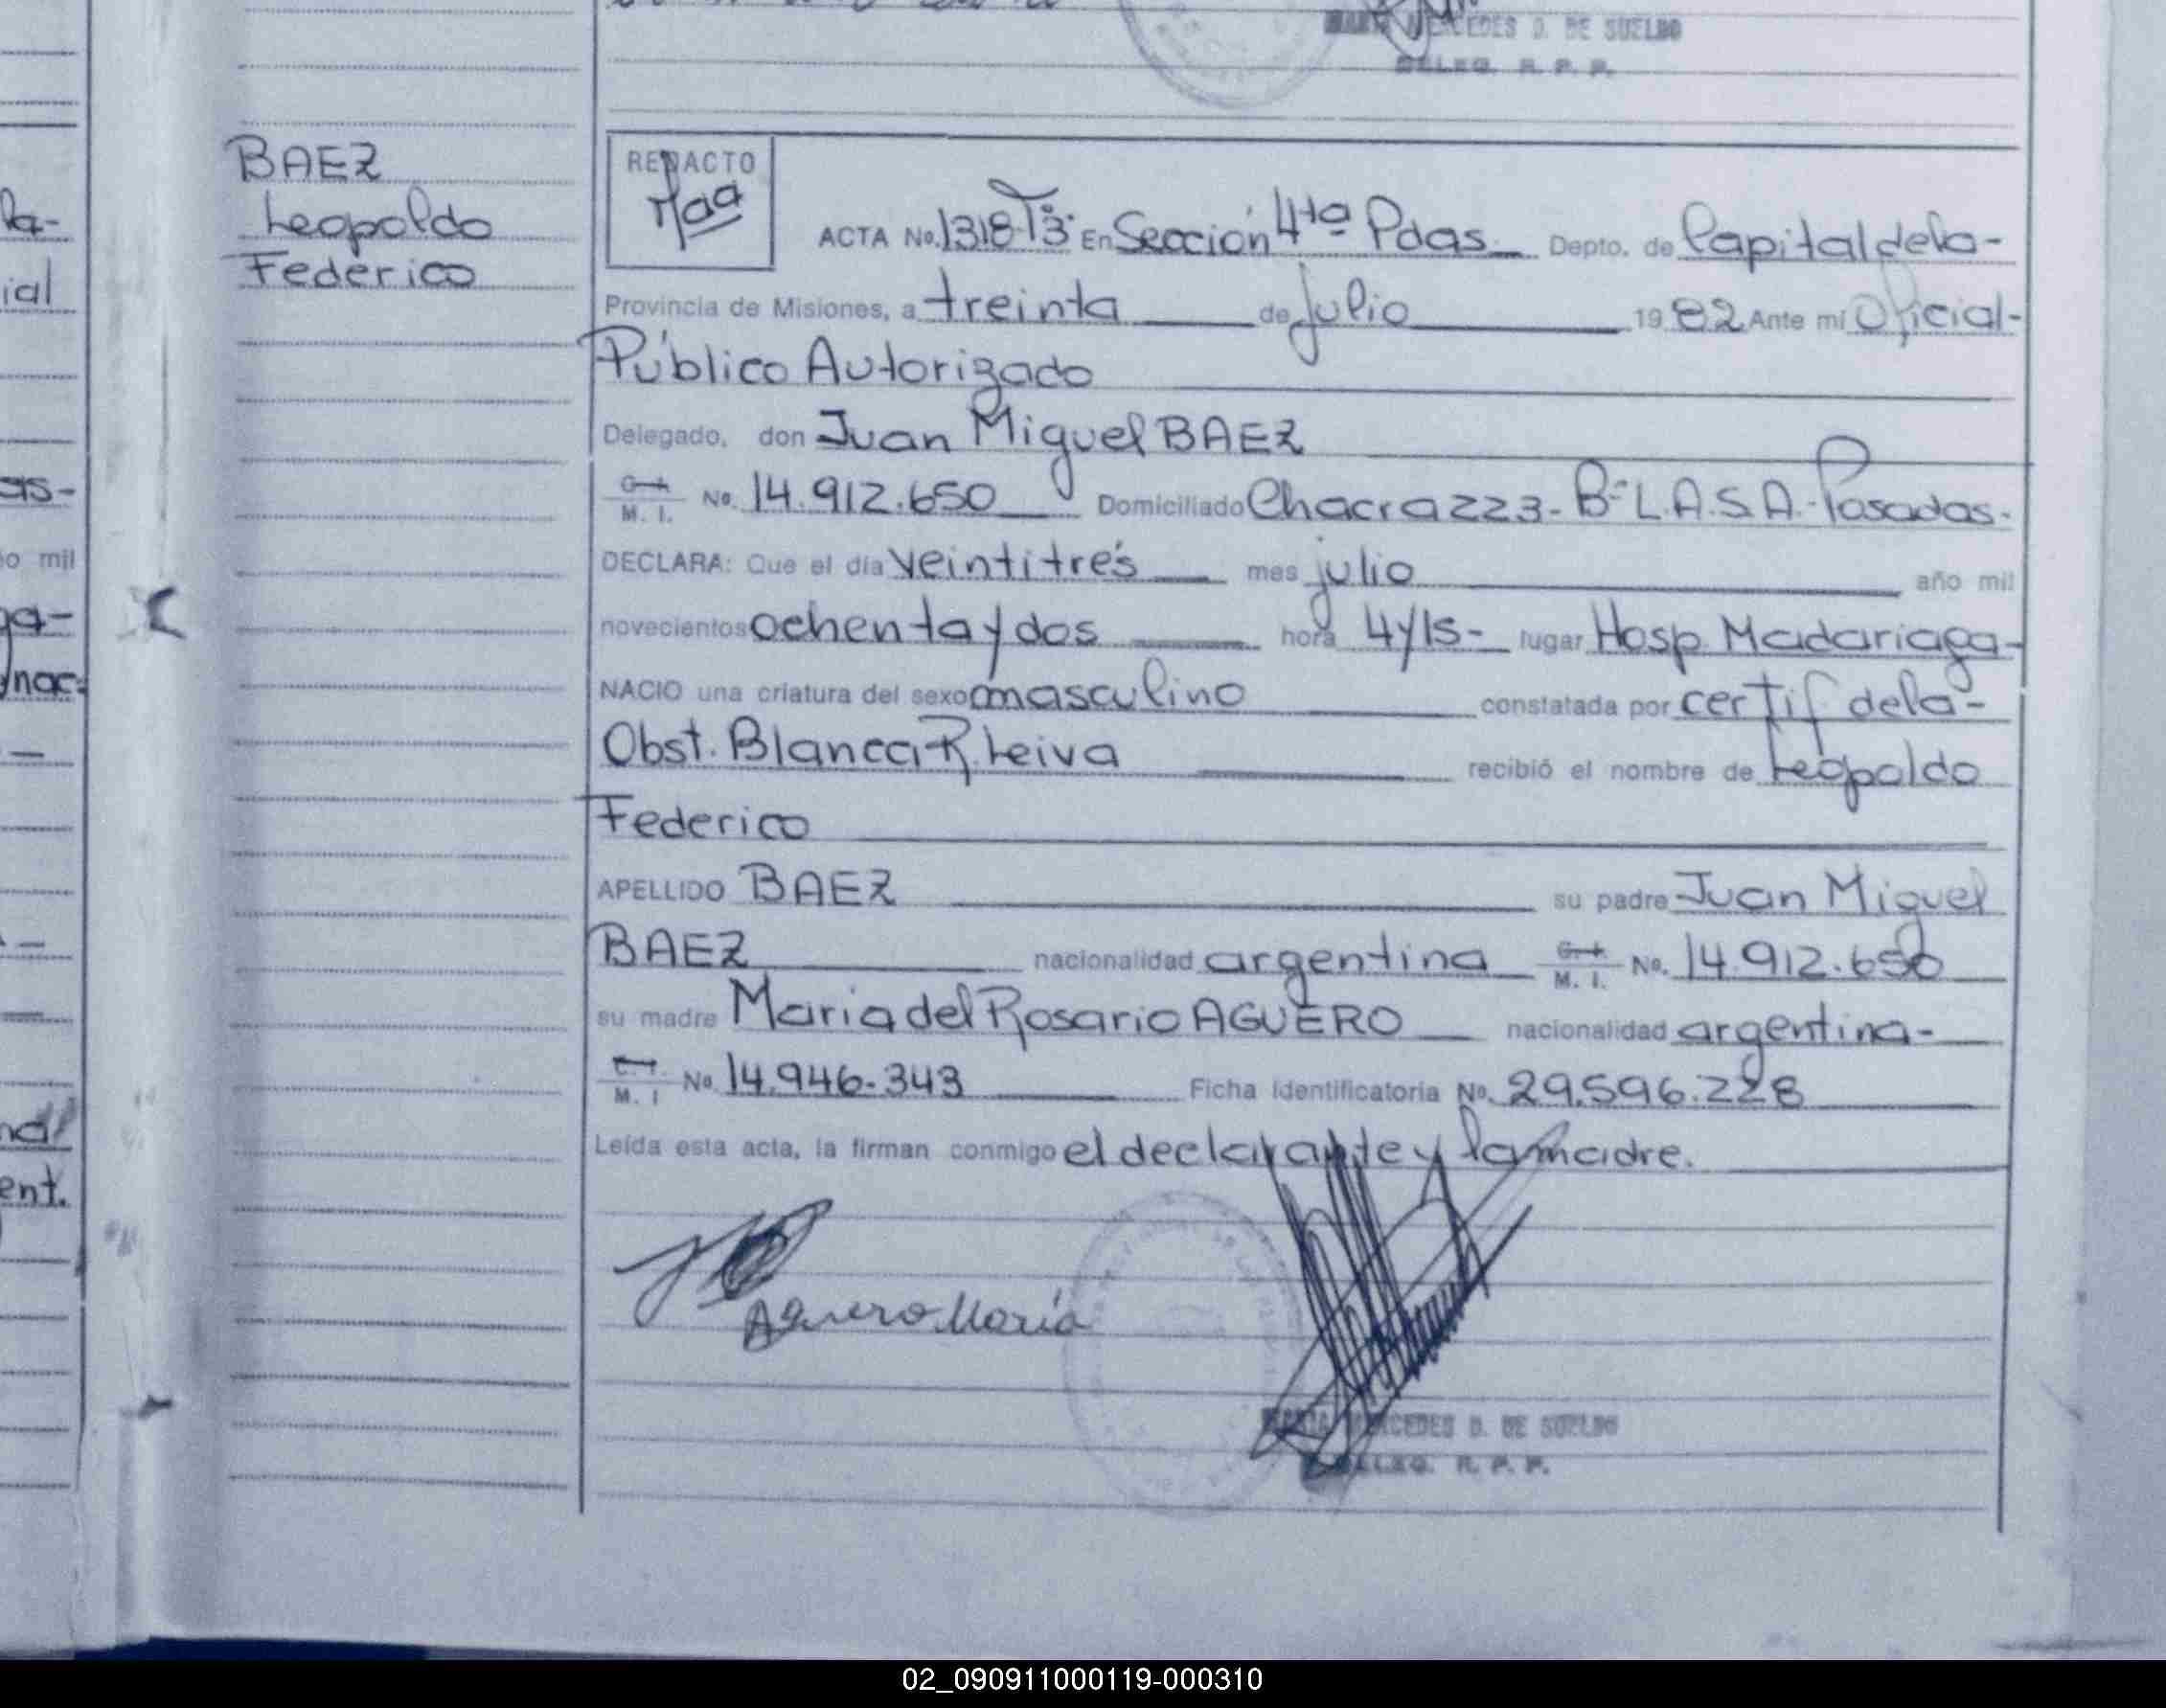 MARIA MERCEDES D. DE SUELDO
DELEG. R. P. P.
BAEZ
Leopoldo
Federico
REDACTO
ACTA No. 1318 Tº 3º En Sección 4ta Pdas. Depto. de Capital de la-
Provincia de Misiones, a treinta de julio 19 82 Ante mí Oficial-
Público Autorizado
Delegado, don Juan Miguel BAEZ
M. I. No. 14.912.650 Domiciliado Chacra 223- Bº L.A.S.A.- Posadas.
DECLARA: Que el día veintitrés mes julio año mil
novecientos ochenta y dos hora 4 y 15- lugar Hosp. Madariaga-
NACIO una criatura del sexo masculino constatada por certif de la-
Obst. Blanca R. Leiva recibió el nombre de Leopoldo
Federico
APELLIDO BAEZ su padre Juan Miguel
BAEZ nacionalidad argentina M. I. No. 14.912.650
su madre Maria del Rosario AGUERO nacionalidad argentina-
M. I No. 14.946.343 Ficha Identificatoria No. 29.596.228
Leída esta acta, la firman conmigo el declarante y la madre.
Aguero María
MARIA MERCEDES D. DE SUELDO
DELEG. R. P. P.
la-
ial
sis-
o mil
ga-
nac-
nal
ent.
02_090911000119-000310